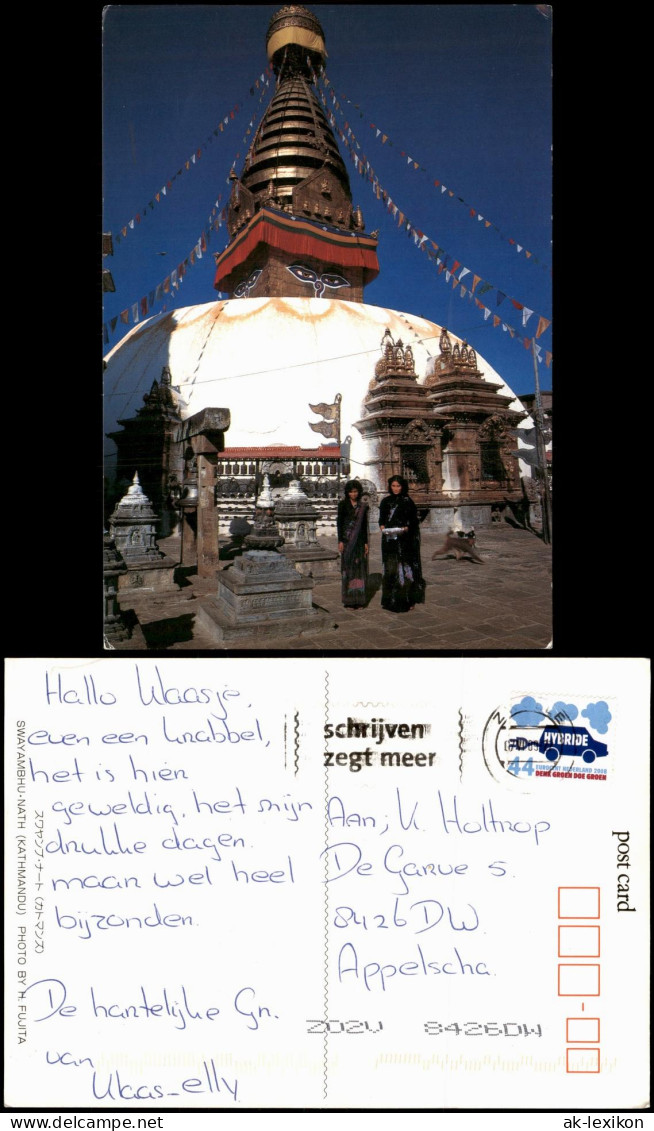 Hallo Klaasje,
even een krabbel,
het is hier
geweldig, het zijn
drukke dagen.
maar wel heel
bijzonder.
De hartelijke Gr.
van
Klaas-elly
SWAYAMBHU-NATH (KATHMANDU) PHOTO BY H. FUJITA
スワヤンブ・ナート (カトマンズ)
schrijven
zegt meer
HYBRIDE
44 EUROCENT NEDERLAND 2008
DENK GROEN DOE GROEN
Aan; K. Holtrop
De Garve 5.
8426 DW.
Appelscha.
post card
ZOZV 8426DW
www.delcampe.net
ak-lexikon